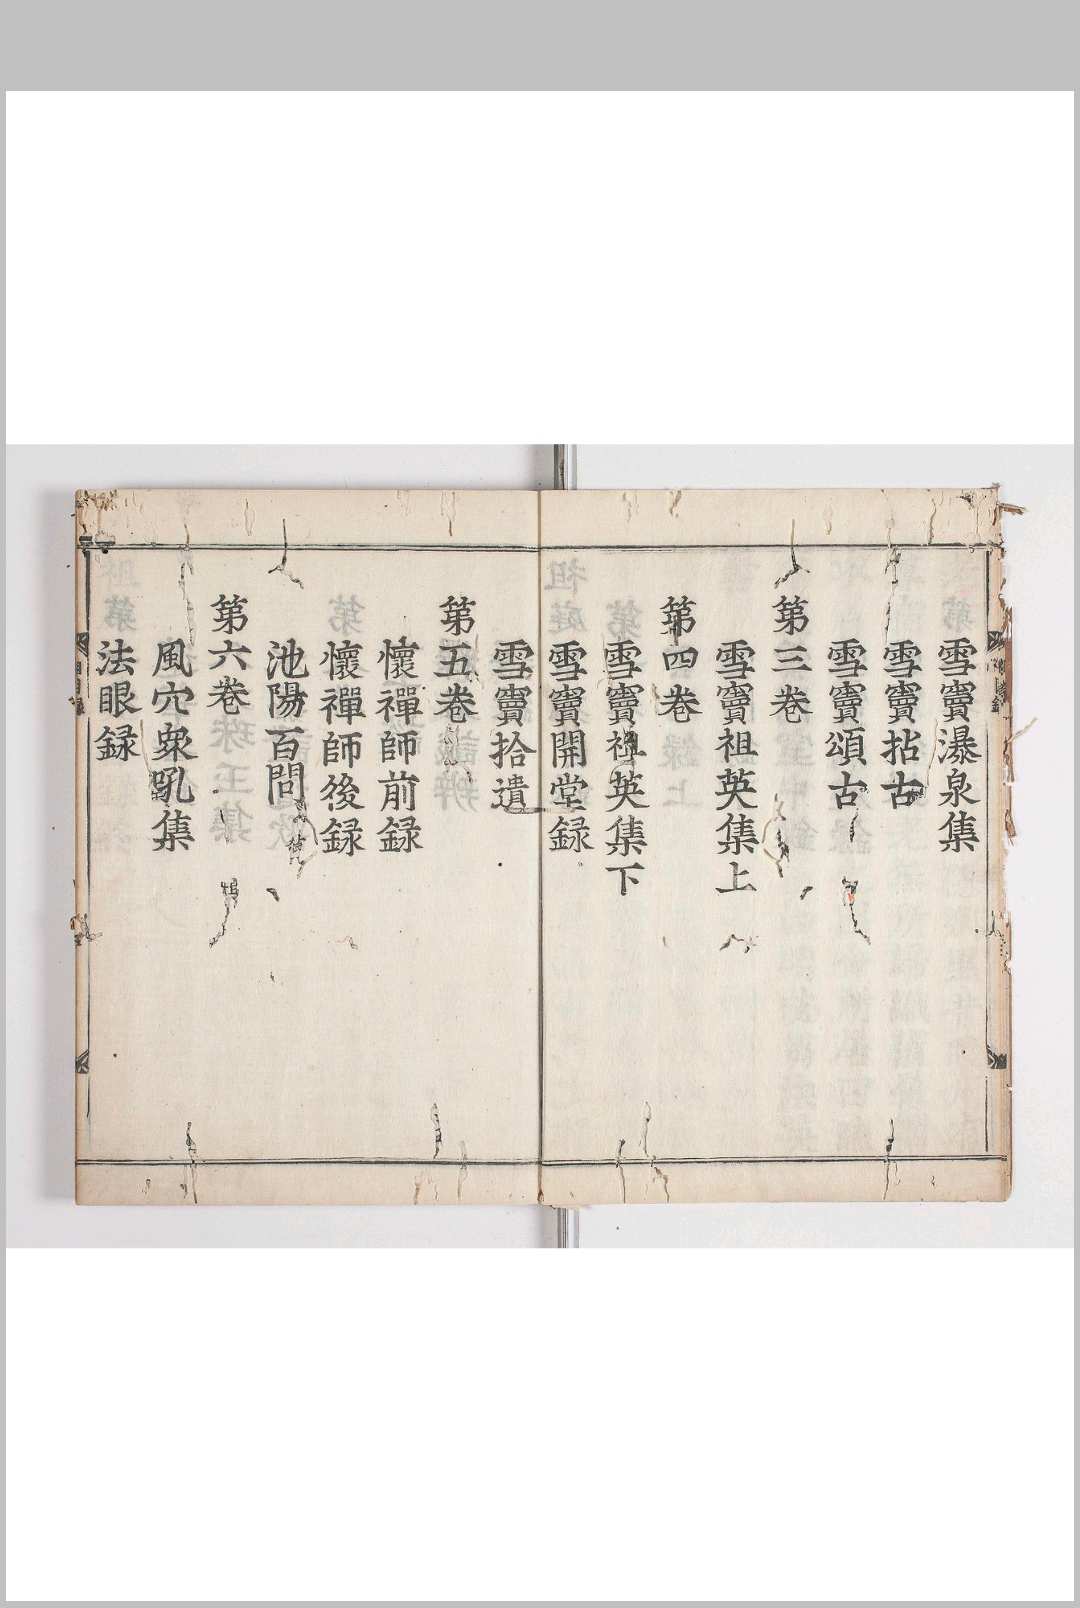 雪竇瀑泉集
雪竇拈古
雪竇頌古
第三卷
雪竇祖英集上
第四卷
雪竇祖英集下
雪竇開堂録
雪竇拾遺
第五卷
懷禪師前録
懷禪師後録
池陽百問
第六卷
風穴衆吼集
法眼録